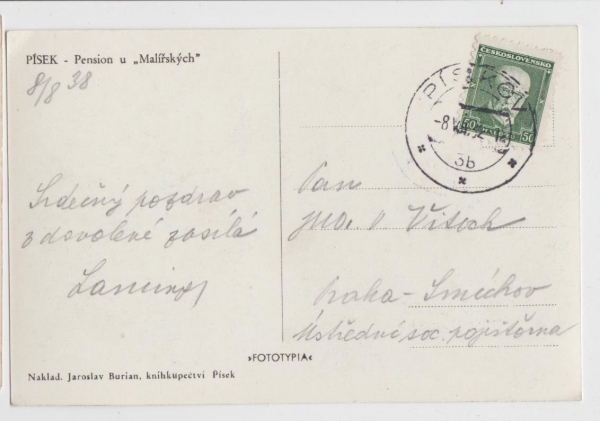 PÍSEK - Pension u „Malířských"
8/8 38
Srdečný pozdrav
z dovolené zasílá
ČESKOSLOVENSKO
50 50
PÍSEK
-8.VIII.
3b
Pan
Vítech
Praha - Smíchov
Ústřední soc. pojišťovna
»FOTOTYPIA«
Naklad. Jaroslav Burian, knihkupectví Písek